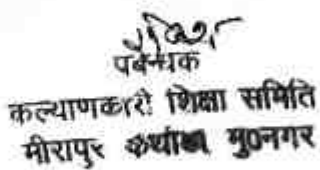 प्रबन्धक
कल्याणकारी शिक्षा समिति
मीरापुर मु०नगर